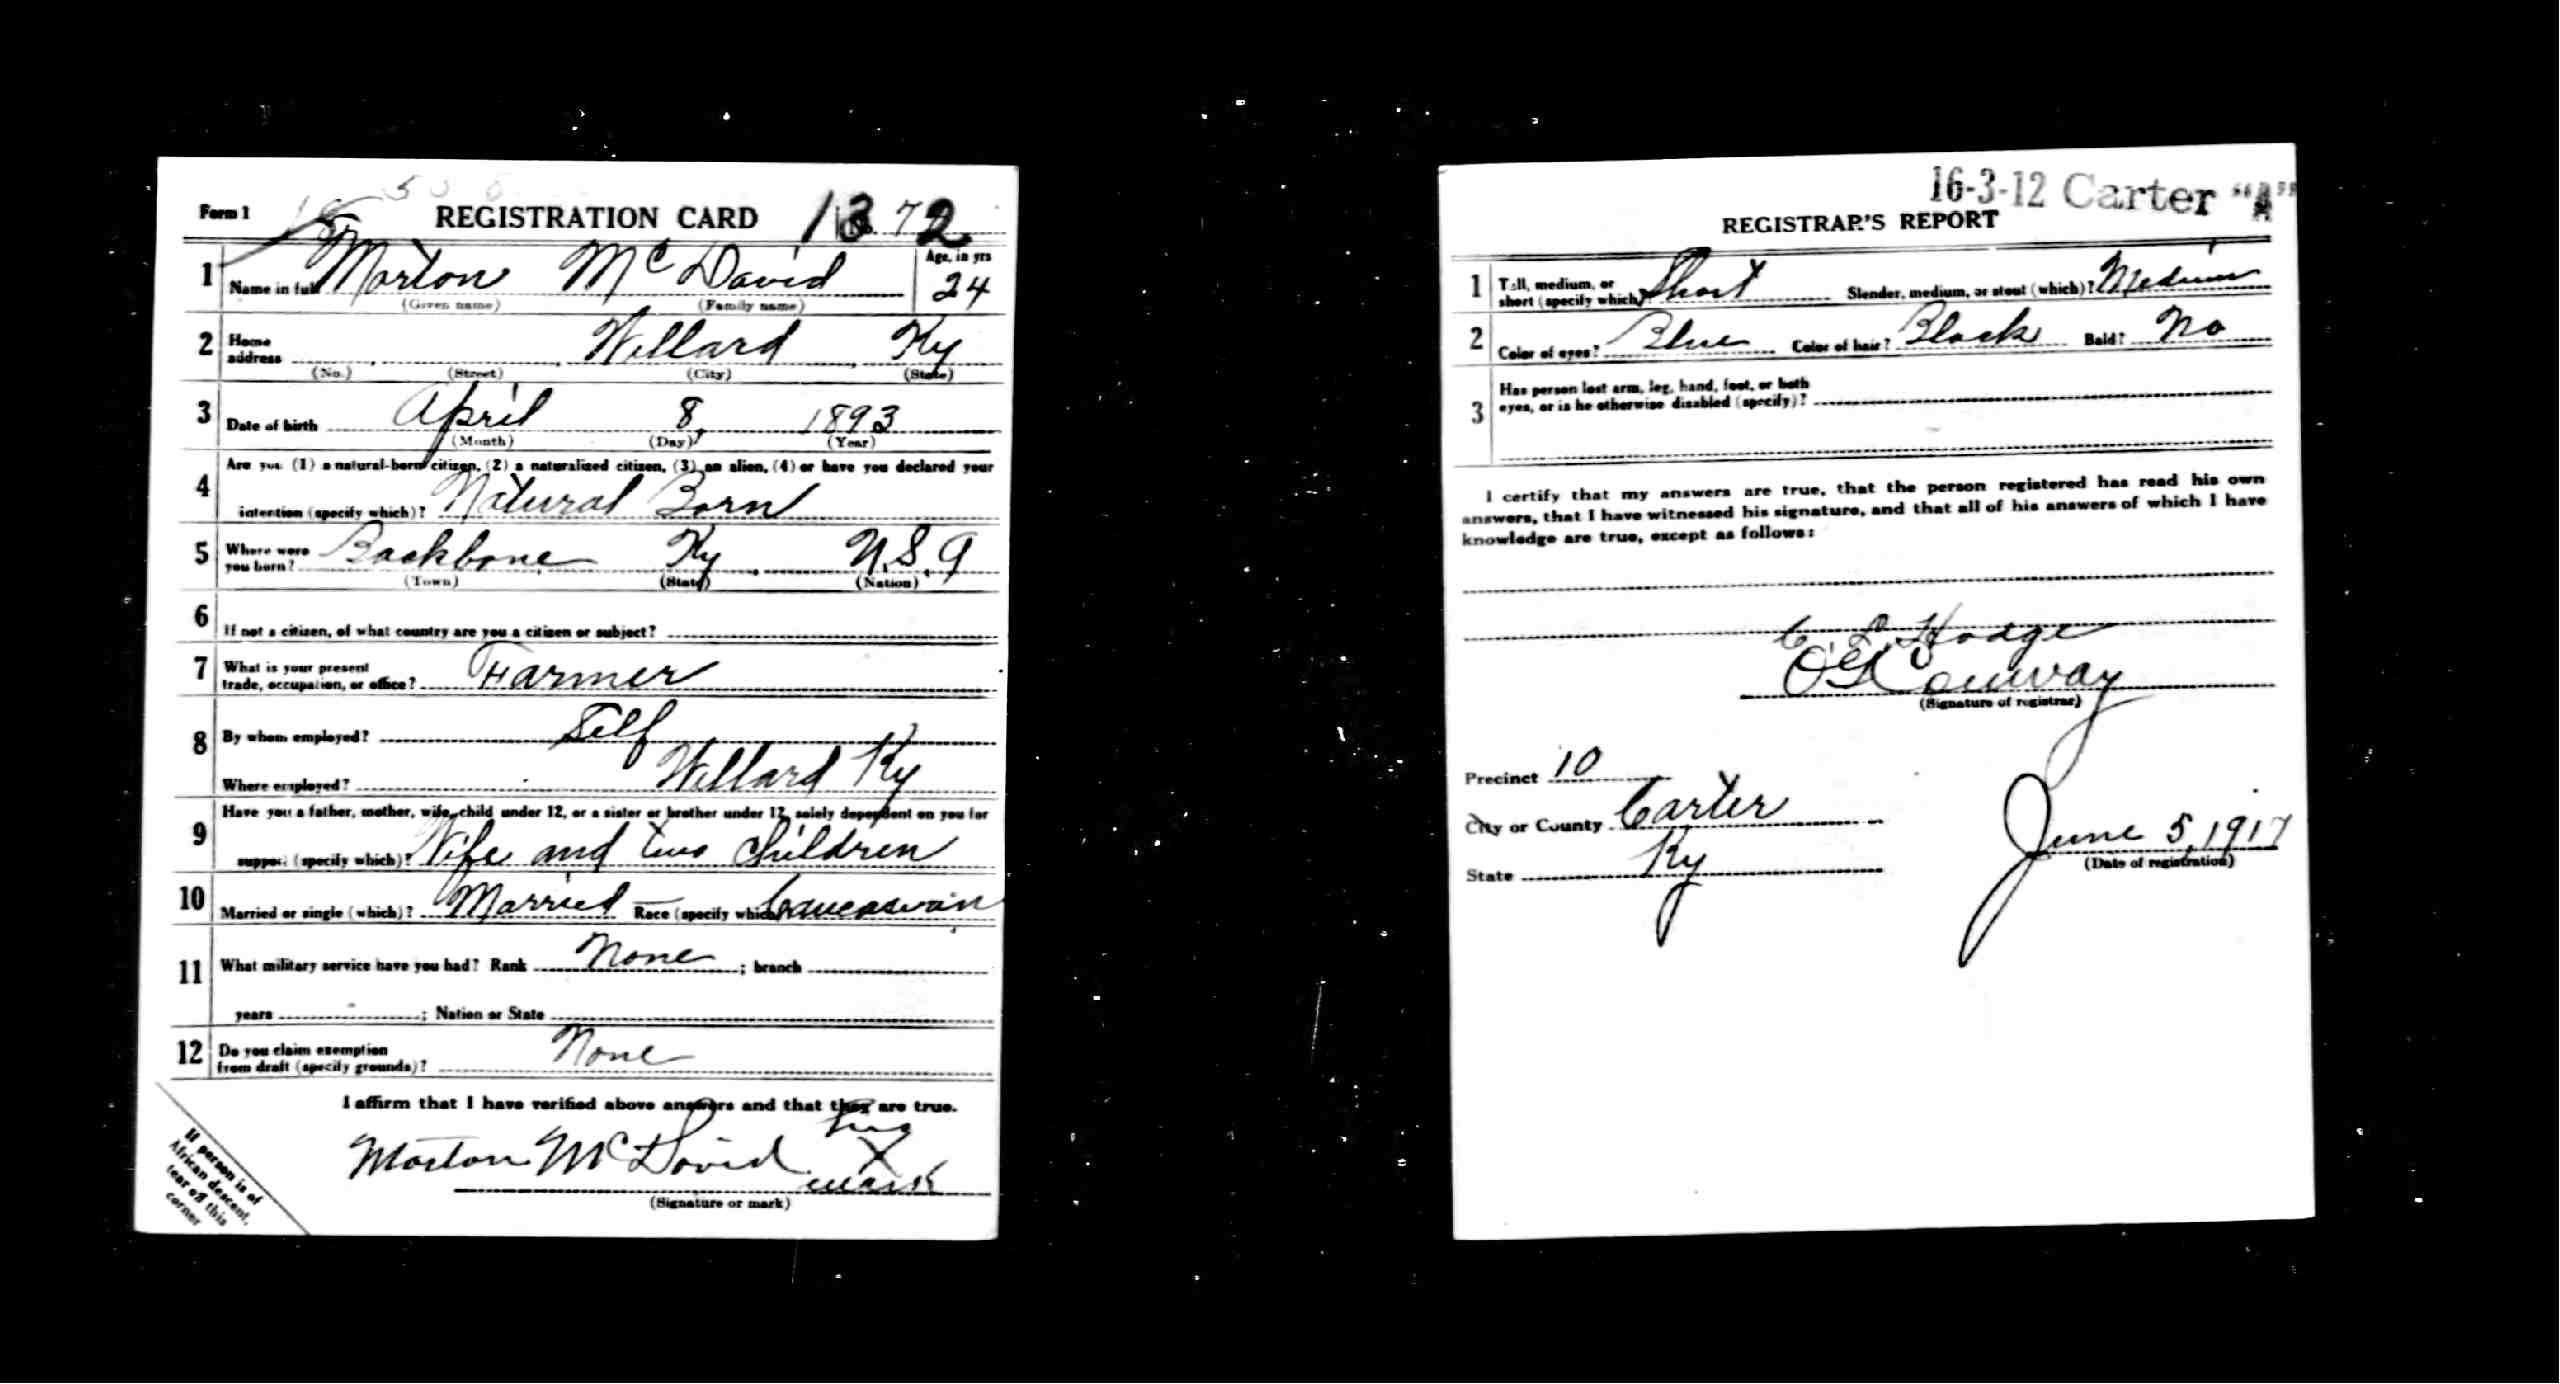 Form 1 REGISTRATION CARD No. 72
1 Name in full Morton McDavid Age, in yrs 24
(Given name) (Family name)
2 Home address Willard Ky
(No.) (Street) (City) (State)
3 Date of birth April 8, 1893
(Month) (Day) (Year)
4 Are you (1) a natural-born citizen, (2) a naturalized citizen, (3) an alien, (4) or have you declared your
intention (specify which)? Natural Born
5 Where were you born? Backbone Ky U.S.A
(Town) (State) (Nation)
6 If not a citizen, of what country are you a citizen or subject?
7 What is your present trade, occupation, or office? Farmer
8 By whom employed? Self
Where employed? Willard Ky
9 Have you a father, mother, wife, child under 12, or a sister or brother under 12, solely dependent on you for
support (specify which)? Wife and two children
10 Married or single (which)? Married Race (specify which)? Caucasian
11 What military service have you had? Rank None ; branch
years ; Nation or State
12 Do you claim exemption from draft (specify grounds)? None
I affirm that I have verified above answers and that they are true.
his
Morton McDavid X
mark
(Signature or mark)
If person is of
African descent,
tear off this
corner
16-3-12 Carter "A"
REGISTRAR'S REPORT
1 Tall, medium, or short (specify which)? Short Slender, medium, or stout (which)? Medium
2 Color of eyes? Blue Color of hair? Black Bald? No
3 Has person lost arm, leg, hand, foot, or both
eyes, or is he otherwise disabled (specify)?
I certify that my answers are true, that the person registered has read his own
answers, that I have witnessed his signature, and that all of his answers of which I have
knowledge are true, except as follows:
C. L. Hodge
Conway
(Signature of registrar)
Precinct 10
City or County Carter
State Ky
June 5, 1917
(Date of registration)